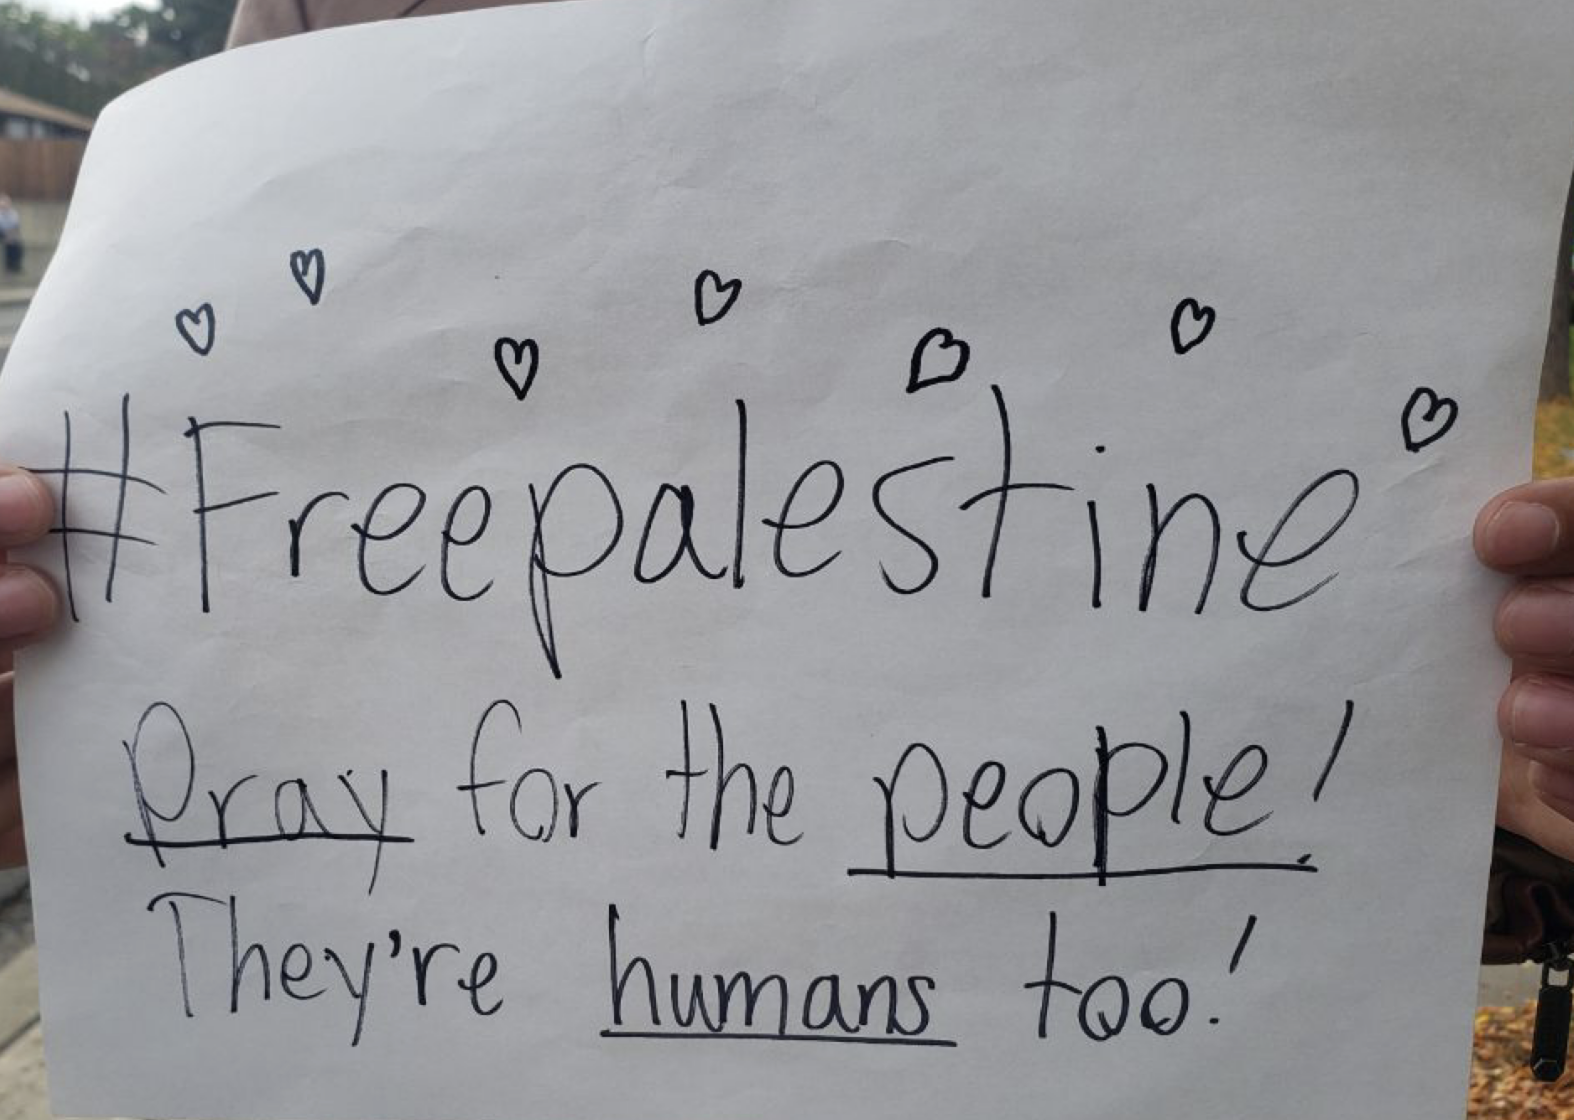 #Freepalestine
Pray for the people!
They're humans too!